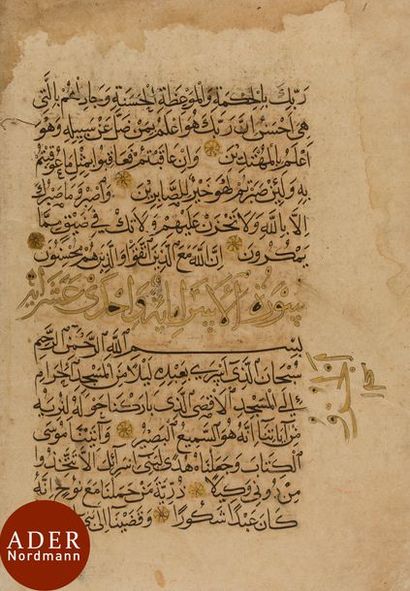 ربك بالحكمة والموعظة الحسنة وجادلهم بالتي
هي احسن ان ربك هو اعلم بمن ضل عن سبيله وهو
اعلم بالمهتدين وان عاقبتم فعاقبوا بمثل ما عوقبتم
به ولئن صبرتم لهو خير للصابرين واصبر وما صبرك
الا بالله ولا تحزن عليهم ولا تك في ضيق مما
يمكرون ان الله مع الذين اتقوا والذين هم محسنون
سورة الاسرا مائة واحدى عشر اية
بسم الله الرحمن الرحيم
سبحان الذي اسرى بعبده ليلا من المسجد الحرام
الى المسجد الاقصى الذي باركنا حوله لنريه
من اياتنا انه هو السميع البصير واتينا موسى
الكتاب وجعلناه هدى لبني اسرائيل الا تتخذوا
من دوني وكيلا ذرية من حملنا مع نوح انه
كان عبدا شكورا وقضينا الى بني
ADER
Nordmann